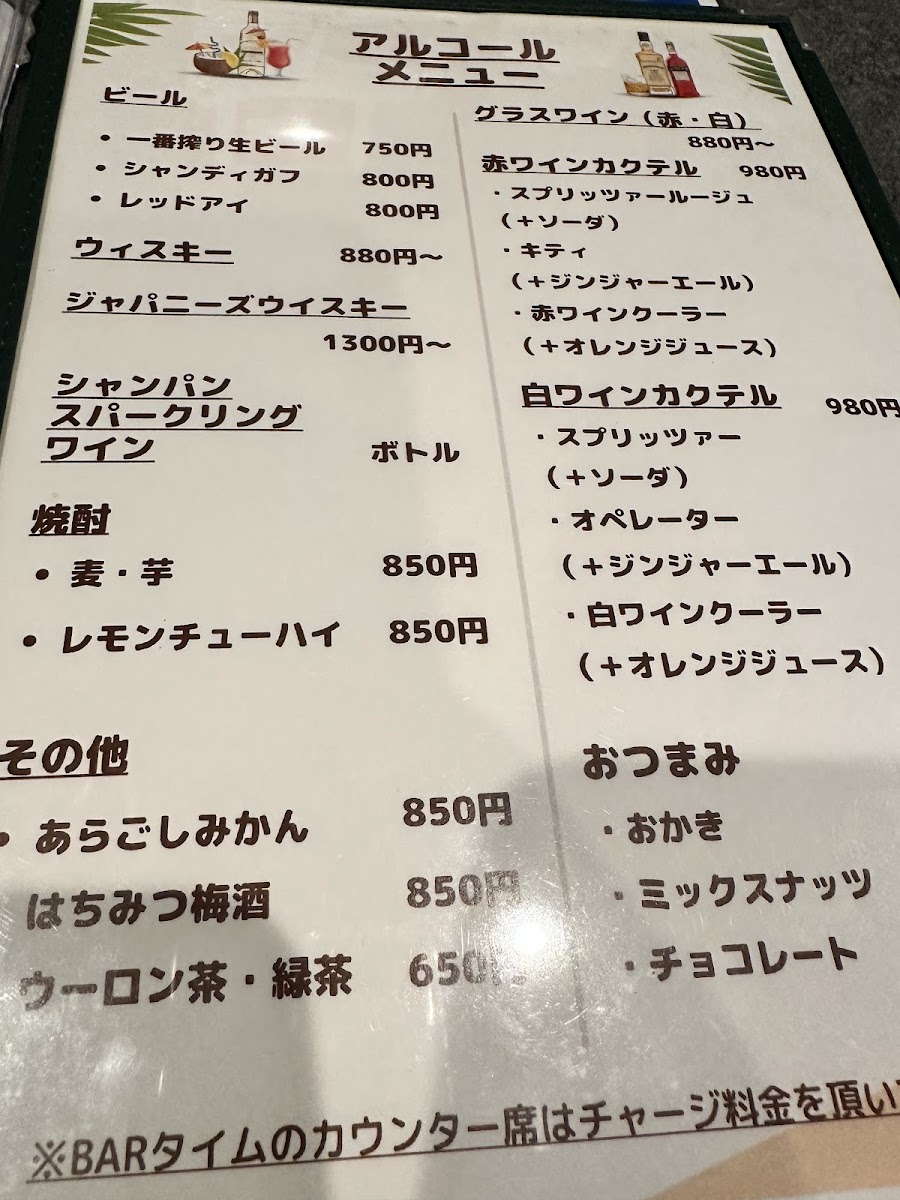 アルコール
メニュー
ビール
• 一番搾り生ビール 750円
• シャンディガフ 800円
• レッドアイ 800円
ウィスキー 880円〜
ジャパニーズウイスキー
1300円〜
シャンパン
スパークリング
ワイン ボトル
焼酎
• 麦・芋 850円
• レモンチューハイ 850円
その他
• あらごしみかん 850円
はちみつ梅酒 850円
ウーロン茶・緑茶 650円
グラスワイン（赤・白）
880円〜
赤ワインカクテル 980円
・スプリッツァールージュ
（＋ソーダ）
・キティ
（＋ジンジャーエール）
・赤ワインクーラー
（＋オレンジジュース）
白ワインカクテル 980円
・スプリッツァー
（＋ソーダ）
・オペレーター
（＋ジンジャーエール）
・白ワインクーラー
（＋オレンジジュース）
おつまみ
・おかき
・ミックスナッツ
・チョコレート
※BARタイムのカウンター席はチャージ料金を頂い